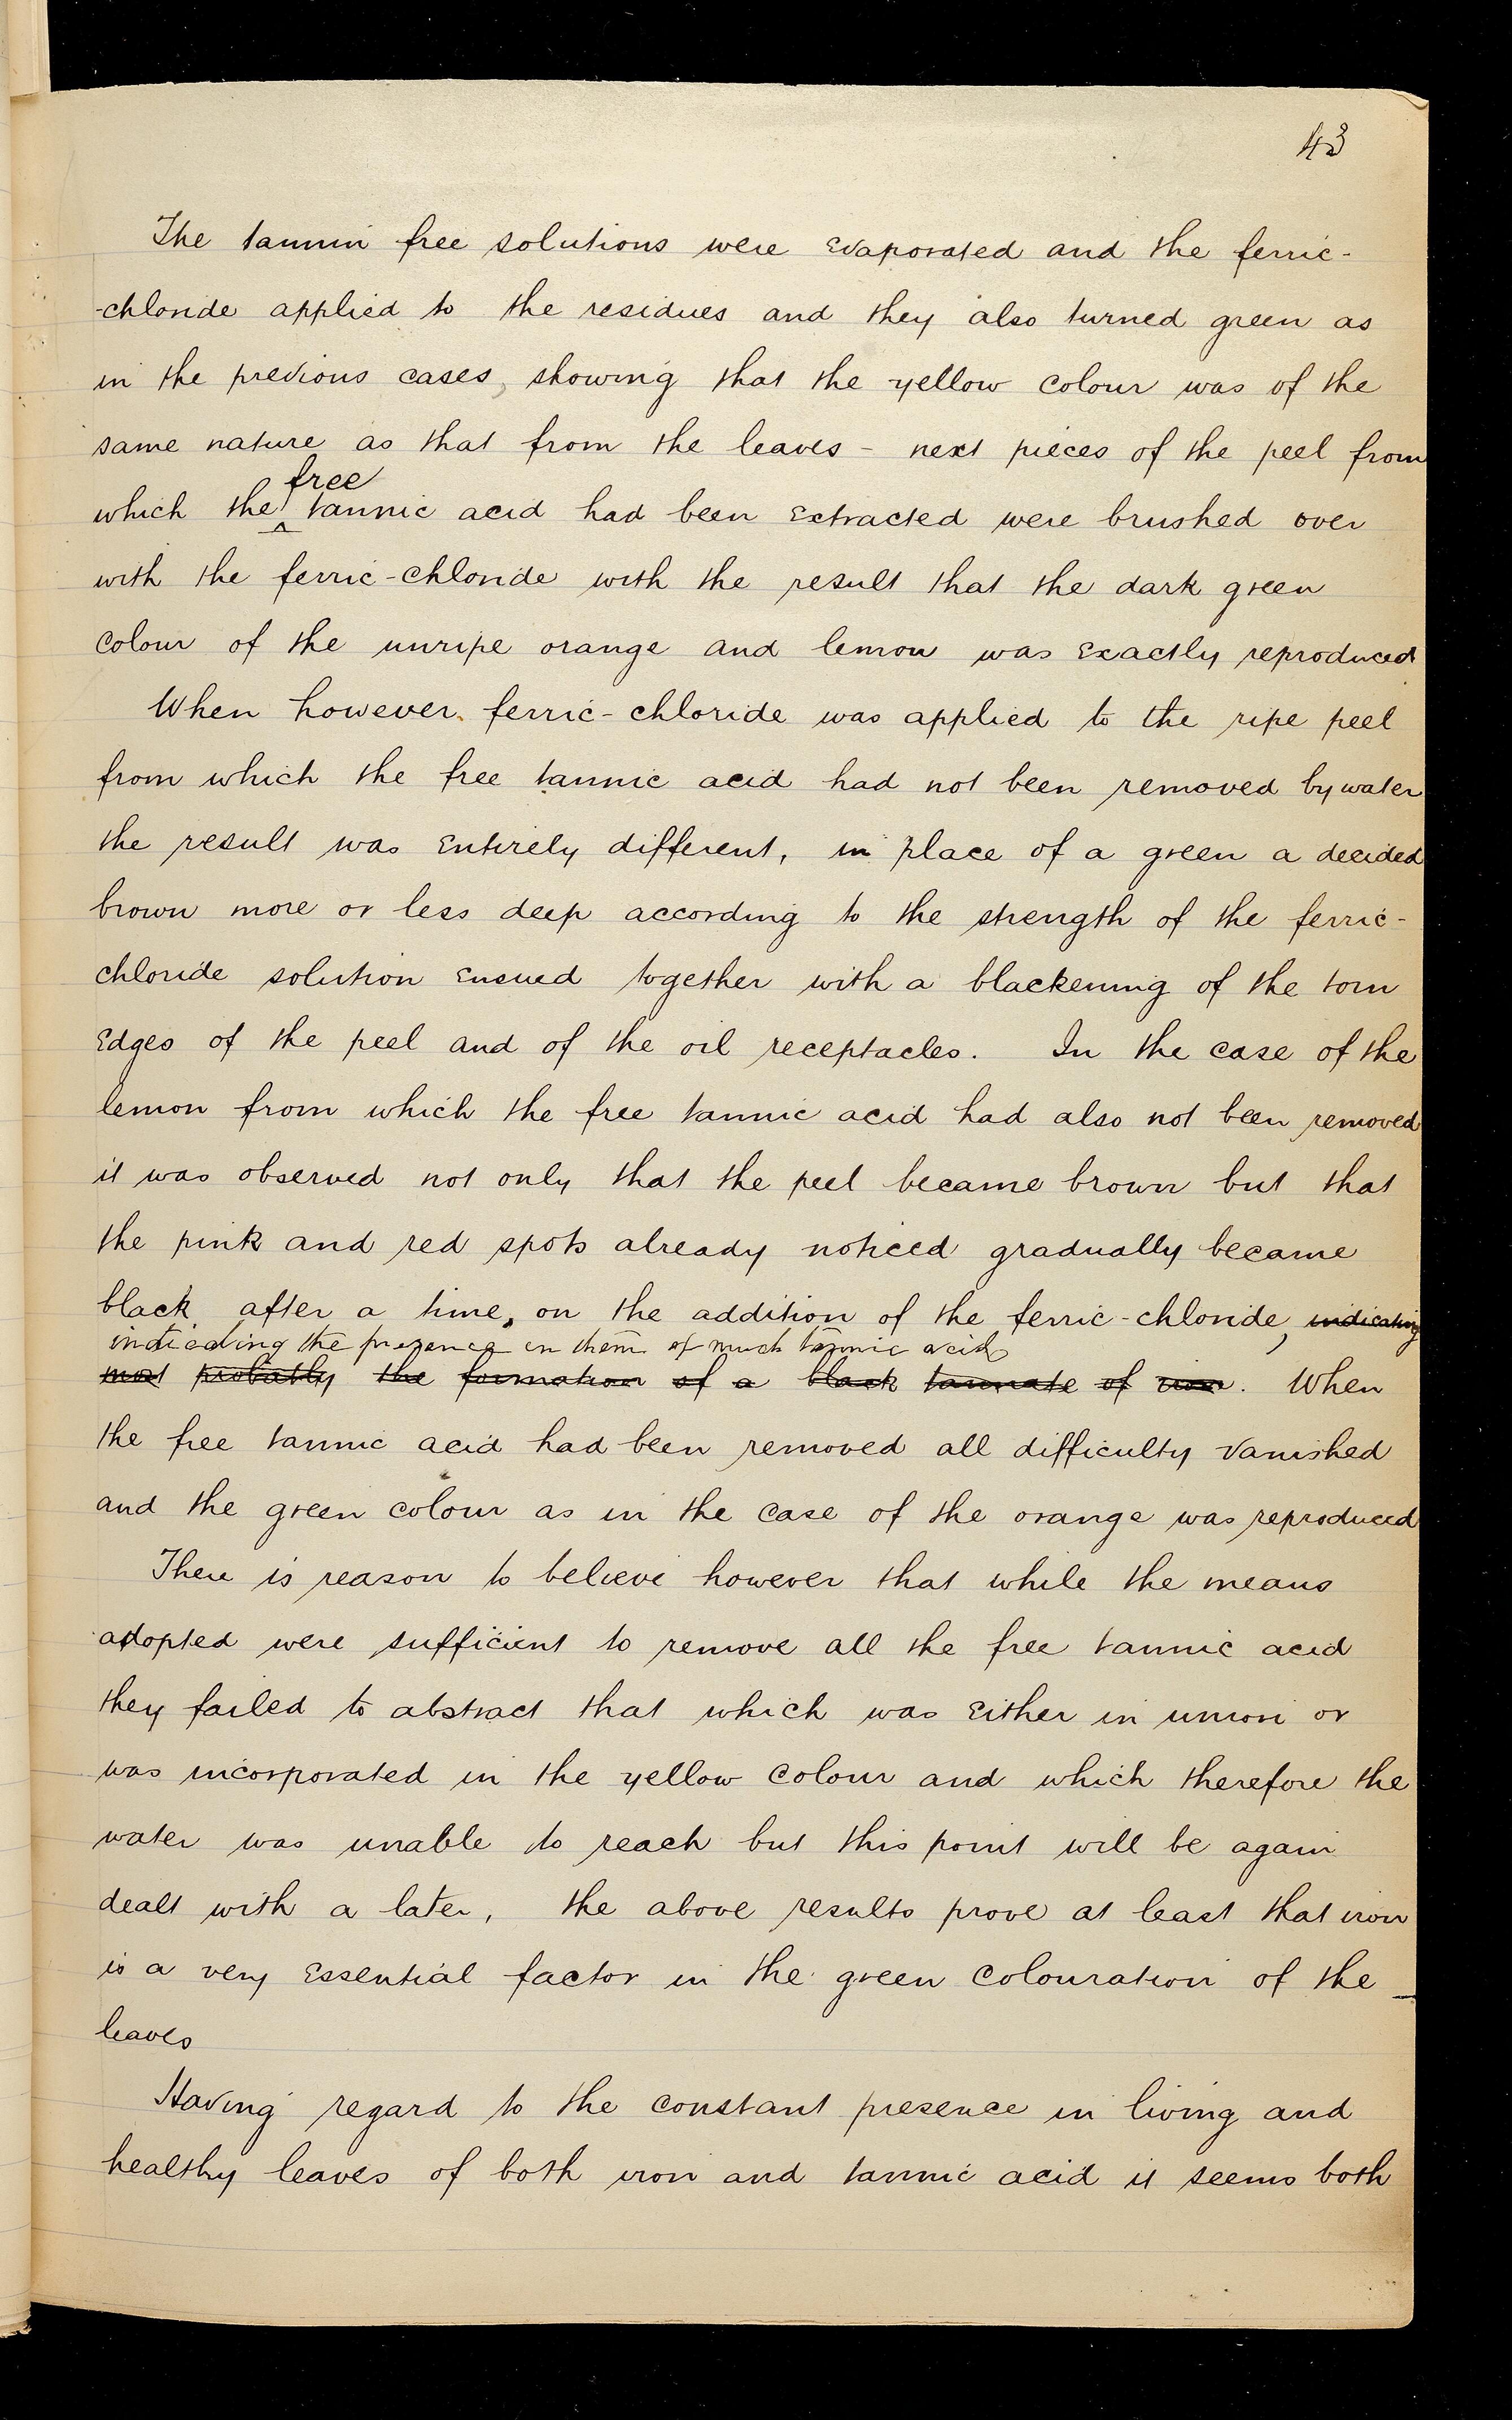 43
The tannin free solutions were evaporated and the ferric-
-chloride applied to the residues and they also turned green as
in the previous cases, showing that the yellow colour was of the
same nature as that from the leaves - next pieces of the peel from
free
which the tannic acid had been extracted were brushed over
with the ferric-chloride with the result that the dark green
colour of the unripe orange and lemon was exactly reproduced
When however ferric-chloride was applied to the ripe peel
from which the free tannic acid had not been removed by water
the result was entirely different, in place of a green a decided
brown more or less deep according to the strength of the ferric-
chloride solution ensued together with a blackening of the torn
edges of the peel and of the oil receptacles. In the case of the
lemon from which the free tannic acid had also not been removed
it was observed not only that the peel became brown but that
the pink and red spots already noticed gradually became
black after a time, on the addition of the ferric-chloride, indicating
indicating the presence in them of much tannic acid
most probably the formation of a black tannate of iron. When
the free tannic acid had been removed all difficulty vanished
and the green colour as in the case of the orange was reproduced
There is reason to believe however that while the means
adopted were sufficient to remove all the free tannic acid
they failed to abstract that which was either in union or
was incorporated in the yellow colour and which therefore the
water was unable to reach but this point will be again
dealt with a later, the above results prove at least that iron
is a very essential factor in the green colouration of the
leaves
Having regard to the constant presence in living and
healthy leaves of both iron and tannic acid it seems both